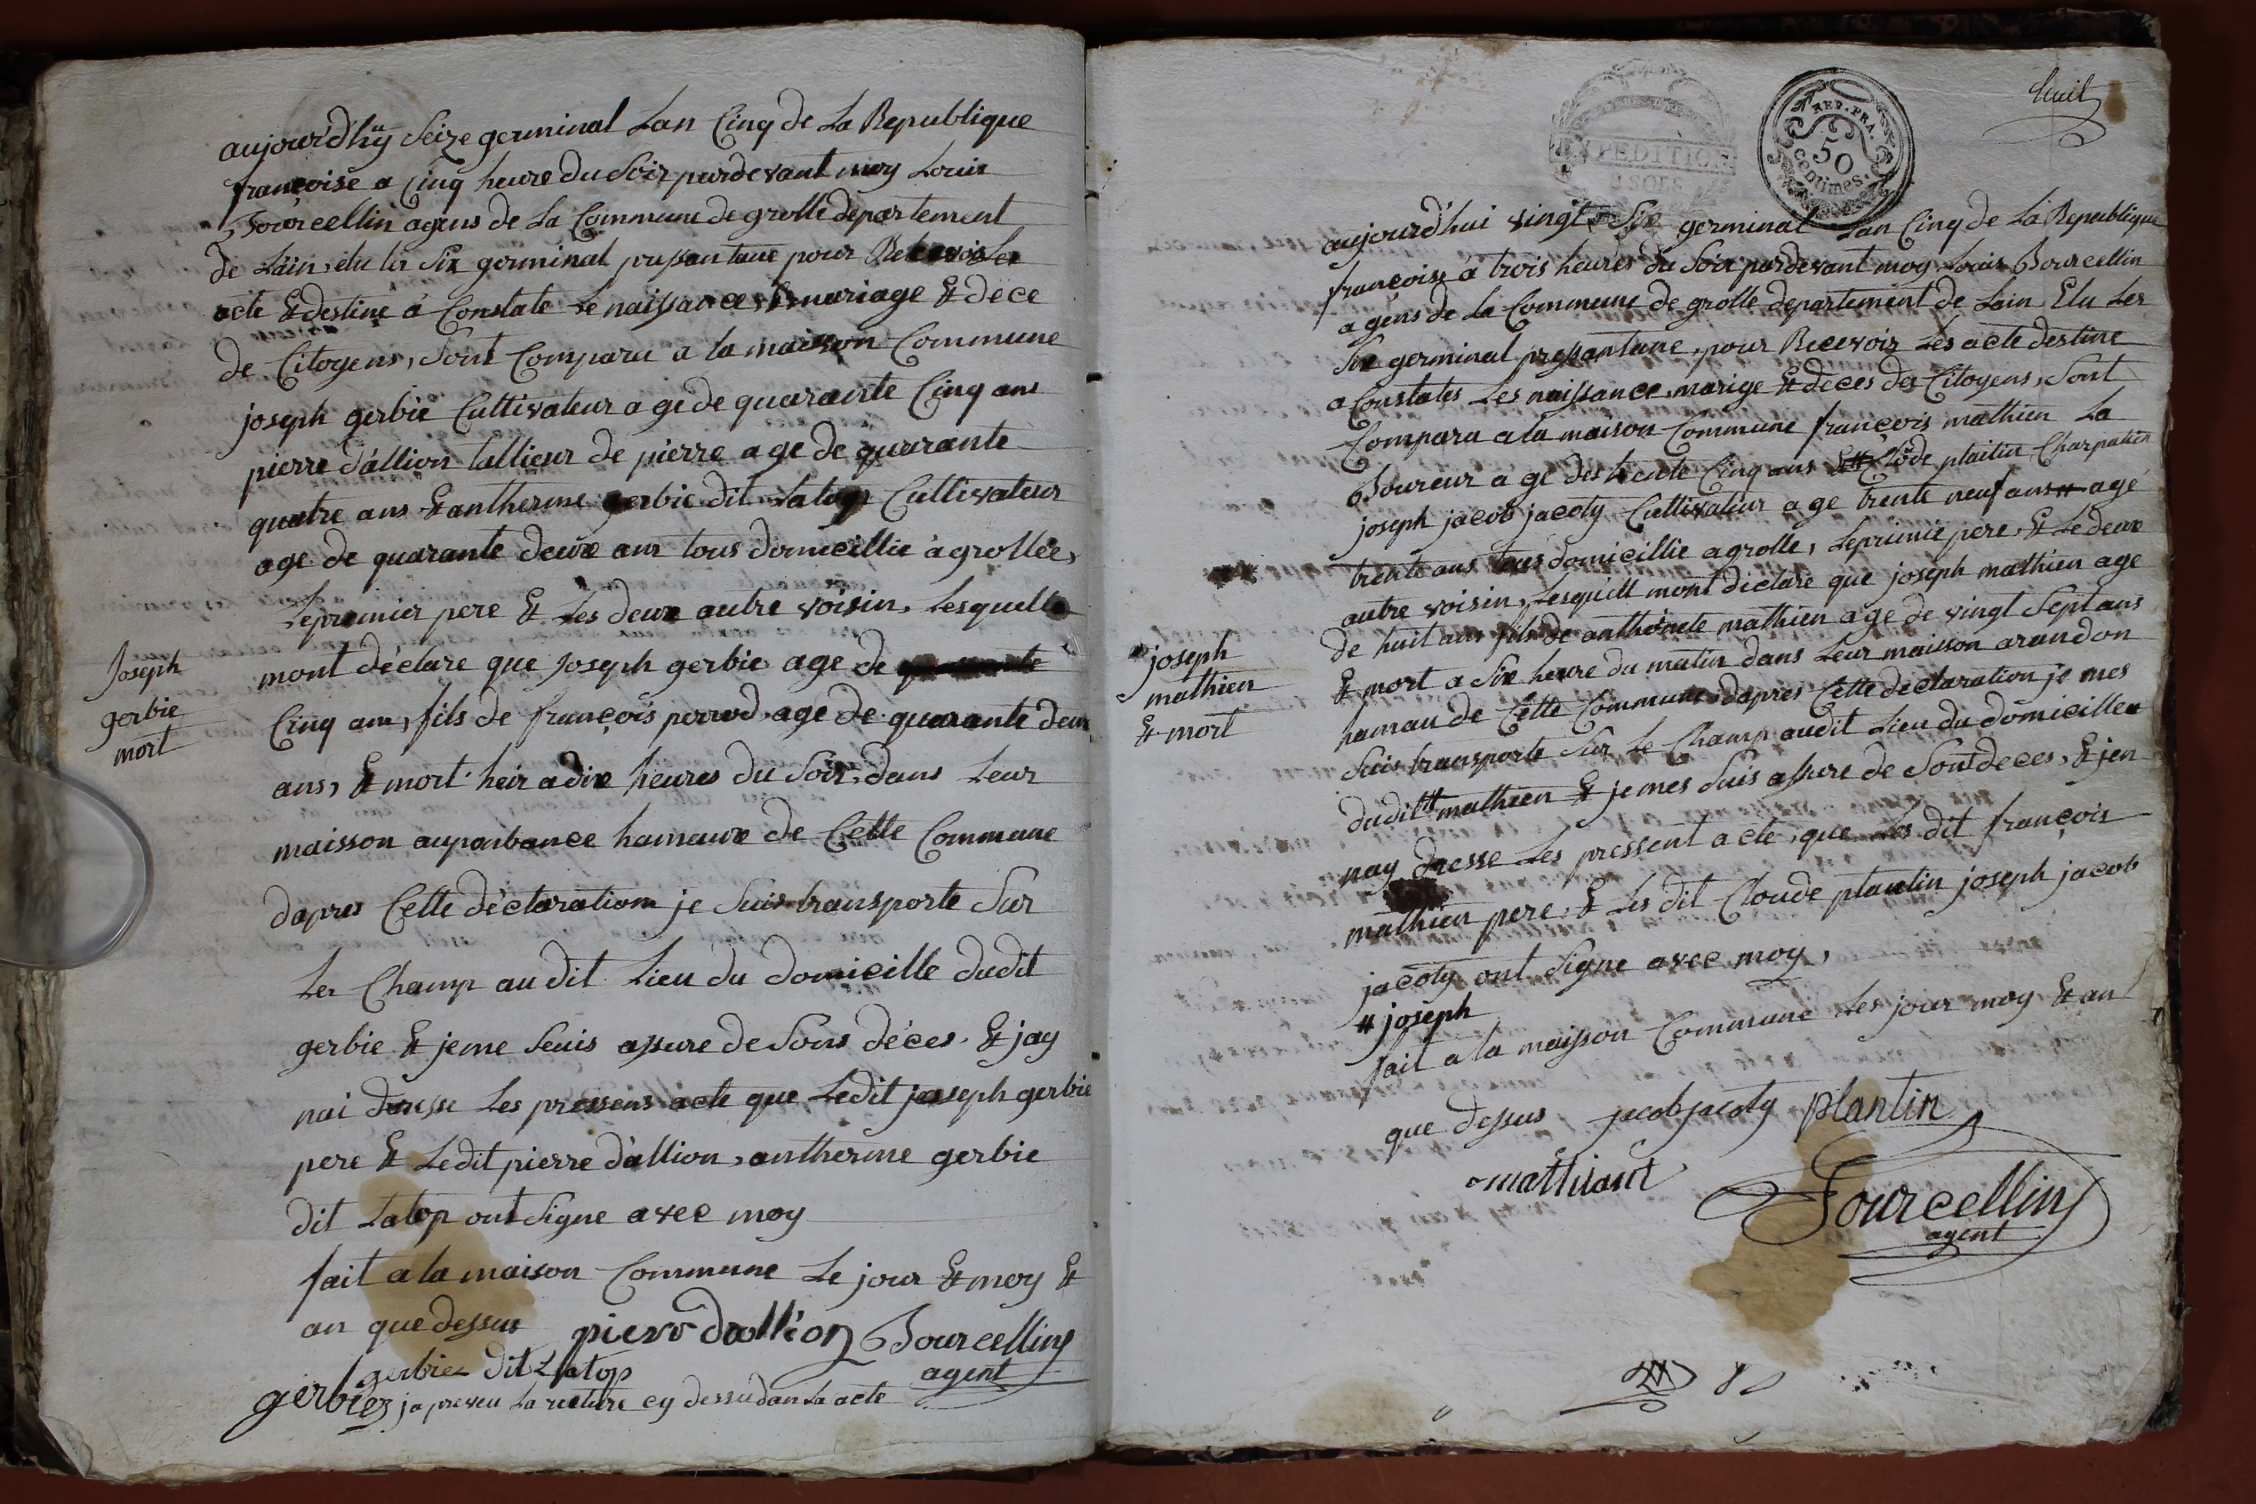 aujourd'hÿ Seize germinal Lan Cinq de La Republique
françoise a Cinq heure du Soir pardevant moy Louis
Bourcellin agens de La Commune de grolle departement
de Lain, élu le Six germinal pressantane pour Recevoir Les
acte & destine á Constate Le naissance & mariage & dece
de Citoyens, Sont Comparu a la maison Commune
joseph gerbie Cultivateur a ge de quarainte Cinq ans
pierre dállion tallieur de pierre a ge de quarante
quatre ans & antherme gerbie dit Latop Cultivateur
age de quarante deux ans tous domicillie à grollée,
Lepremier pere & Les deux autre voisin, Lesquelle
mont déclare que Joseph gerbie age de
Joseph
gerbie
mort
Cinq ans, fils de françois perrod age de quarante deux
ans, & mort heir a dix heures du Soir, dans Leur
maisson auponbance hamaux de Cette Commune
dapres Cette déclaration je Suis transporte Sur
Les Champ au dit Lieu du domicille dudit
gerbie & jeme Suis assure de Sons déces. & jay
nai dresse Les pressens acte que Ledit joseph gerbie
pere & Ledit pierre dállion, antherme gerbie
dit Latop ont Signe avec moy
fait a la maison Commune Le jour & moy &
an que dessus pierre dallion Bourcellin
agent
gerbiez dit Latop
gerbiez japreveu La recture cy dessu dan La acte
huit
EXPEDITION
REP. FRA.
50
centimes.
aujourd'hui vingt Six germinal Lan Cinq de La Republique
françoise á trois heures du Soir pardevant moy Louis Bourcellin
agens de La Commune de grolle departement de Lain Elu Les
Six germinal pressantane, pour Recevoir Les acte destine
a Constates Les naissance, marige & déces des Citoyens, Sont
Comparu a la maison Commune françois mathien La
Boureur a ge des trente Cinq ans Clode plaitin Charpatien
joseph jacob jacoty Cultivateur a ge trente neuf ans # agé
trente ans tous domicillie agrolle, Lepremie pere, & Le deux
autre voisin, Lesquell mont déclare que joseph mathien agé
de huit ans fils de anthoinete mathien a ge de vingt Sept ans
joseph
mathien
& mort
& mort a Six heure du matin dans Leur maison arandon
hamau de Cette Commune dapres Cette déclaration je mes
Suis transporte Sur Le Champ audit Lieu du domicille
dudit # mathien & je mes Suis assure de Sont deces, & jen
nay dresse Les pressent acte, que Les dit françois
mathien pere, & Les dit Cloude plantin joseph jacob
jacoty ont Signe avec moy,
# joseph
fait a la maisson Commune Les jour moy & an
que dessus jacob jacoty plantin
mathiant
Bourcellin
agent